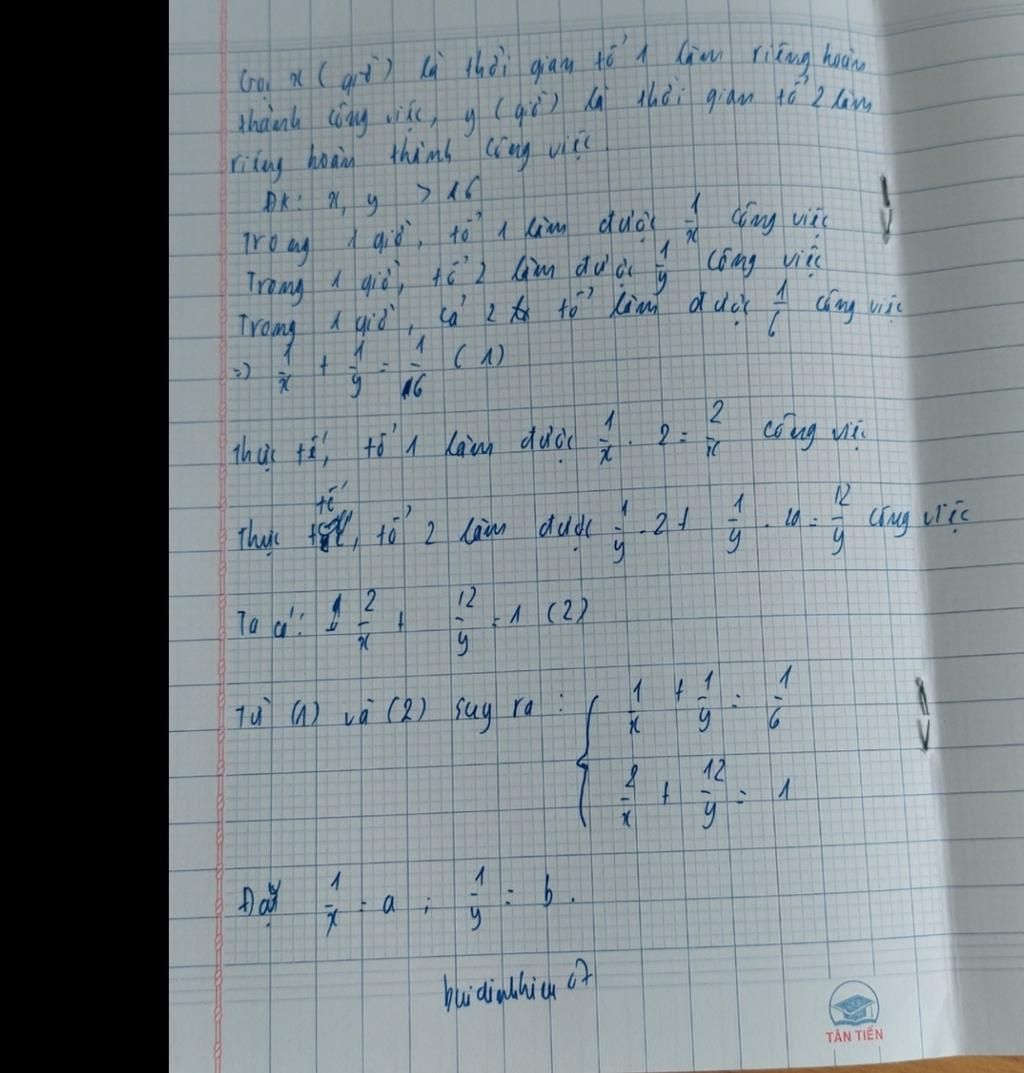 Gọi x (giờ) là thời gian tổ 1 làm riêng hoàn
thành công việc, y (giờ) là thời gian tổ 2 làm
riêng hoàn thành công việc.
ĐK: x, y > 16
Trong 1 giờ, tổ 1 làm được 1/x công việc
Trong 1 giờ, tổ 2 làm được 1/y công việc
Trong 1 giờ, cả 2 tổ làm được 1/6 công việc
=> 1/x + 1/y = 1/16 (1)
Thực tế, tổ 1 làm được 1/x . 2 = 2/x công việc
Thực tế, tổ 2 làm được 1/y . 2 + 1/y . 10 = 12/y công việc
Ta có: 2/x + 12/y = 1 (2)
Từ (1) và (2) suy ra : { 1/x + 1/y = 1/6
2/x + 12/y = 1
Đặt 1/x = a ; 1/y = b.
buidinhhieu c7
TÂN TIẾN